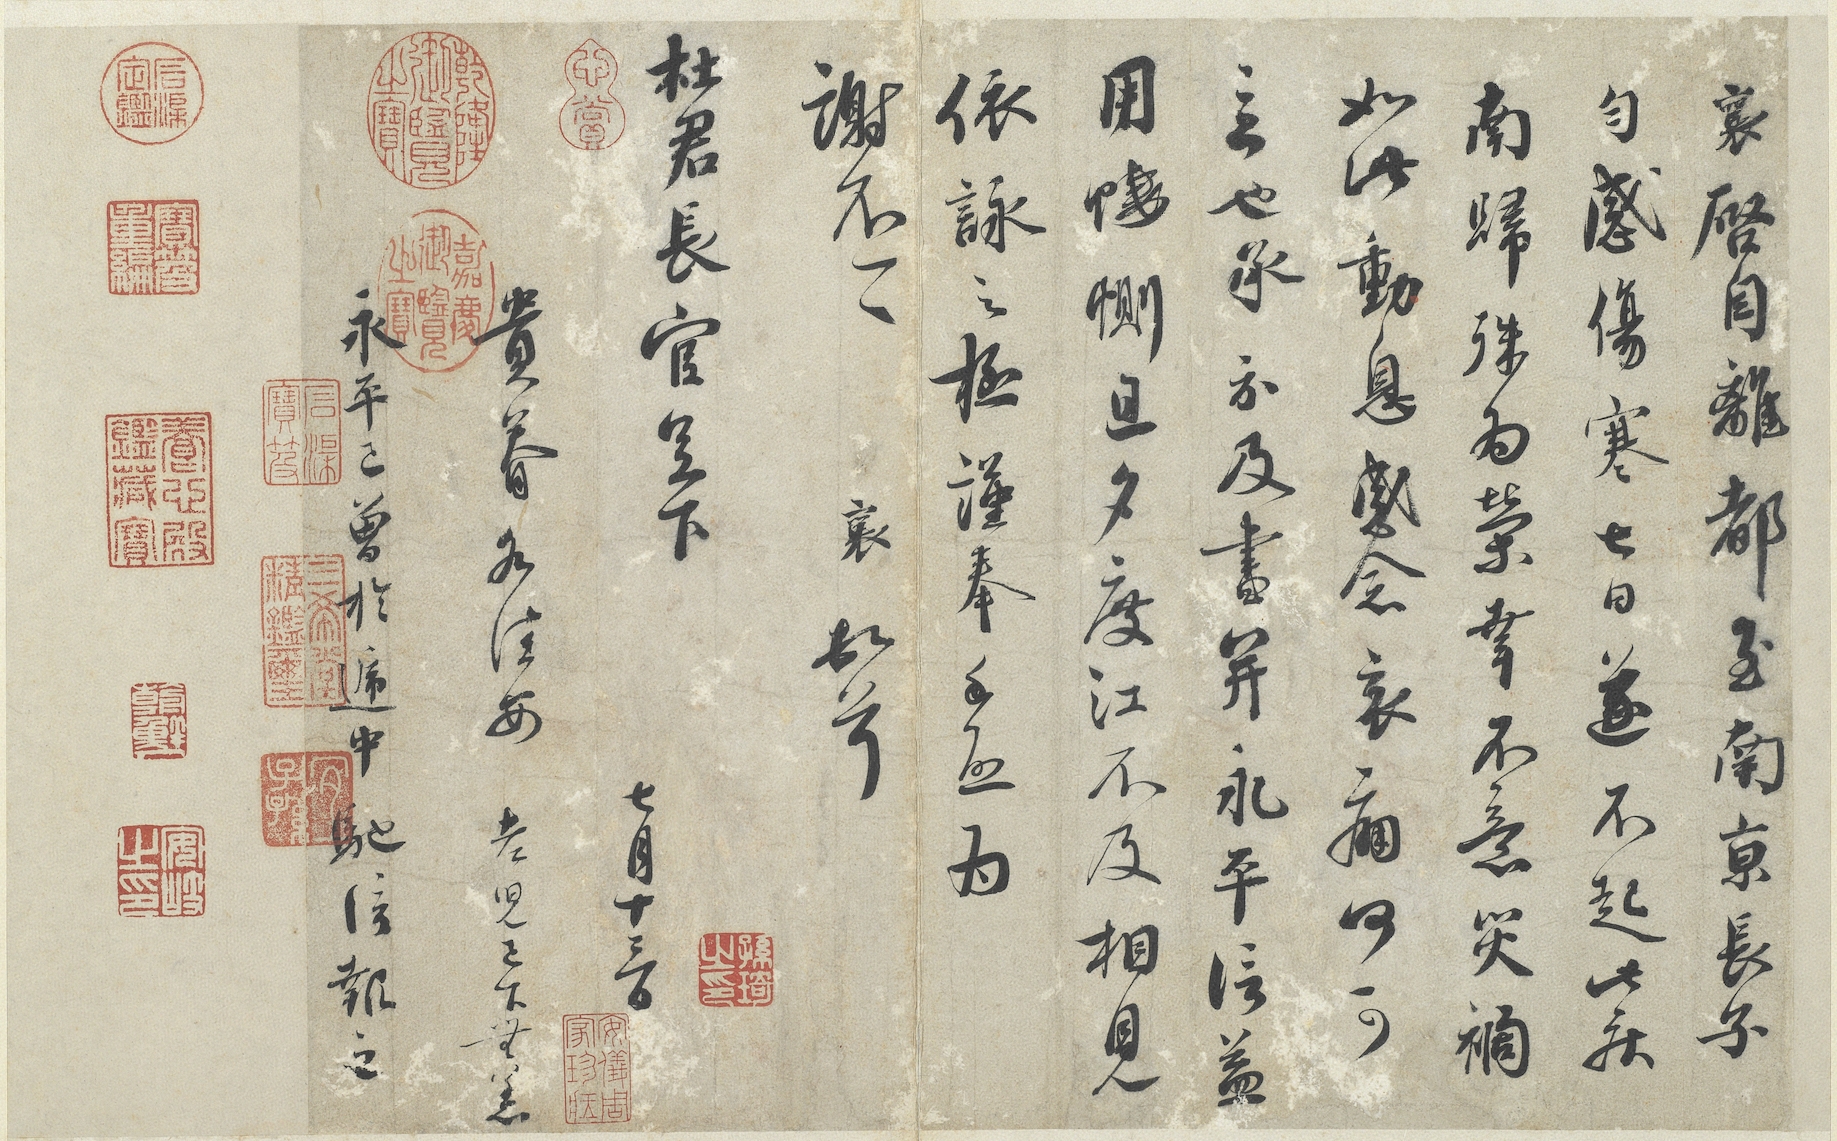 襄啓自離都至南京長子
勻感傷寒七日遂不起此疾
南歸殊為榮幸不意災禍
如此動息感念哀痛何可
言也承示及書并永平信益
用悽惻旦夕度江不及相見
依詠之極謹奉手啓為
謝不一一 襄 頓首
杜君長官足下
七月十三日
貴眷各佳安 老兒已下無恙
永平已曾於遞中馳信報之
心賞
孫琦之印
安儀周家珍藏
乾隆御覽之寶
嘉慶御覽之寶
石渠寶笈
三希堂精鑑璽
宜子孫
石渠定鑑
寶笈重編
養心殿鑑藏寶
朝鮮
安岐之印